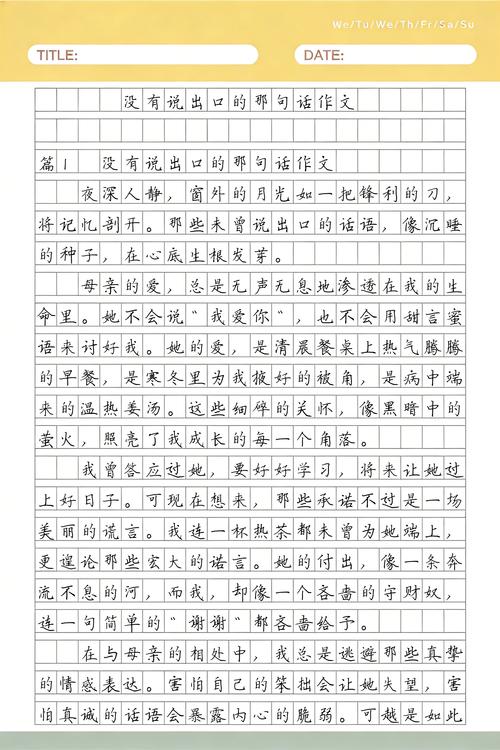 We/Tu/We/Th/Fr/Sa/Su
TITLE: DATE:
没有说出口的那句话作文
篇1 没有说出口的那句话作文
夜深人静，窗外的月光如一把锋利的刀，
将记忆剖开。那些未曾说出口的话语，像沉睡
的种子，在心底生根发芽。
母亲的爱，总是无声无息地渗透在我的生
命里。她不会说“我爱你”，也不会用甜言蜜
语来讨好我。她的爱，是清晨餐桌上热气腾腾
的早餐，是寒冬里为我掖好的被角，是病中端
来的温热姜汤。这些细碎的关怀，像黑暗中的
萤火，照亮了我成长的每一个角落。
我曾答应过她，要好好学习，将来让她过
上好日子。可现在想来，那些承诺不过是一场
美丽的谎言。我连一杯热茶都未曾为她端上，
更遑论那些宏大的诺言。她的付出，像一条奔
流不息的河，而我，却像一个吝啬的守财奴，
连一句简单的“谢谢”都吝啬给予。
在与母亲的相处中，我总是逃避那些真挚
的情感表达。害怕自己的笨拙会让她失望，害
怕真诚的话语会暴露内心的脆弱。可越是如此